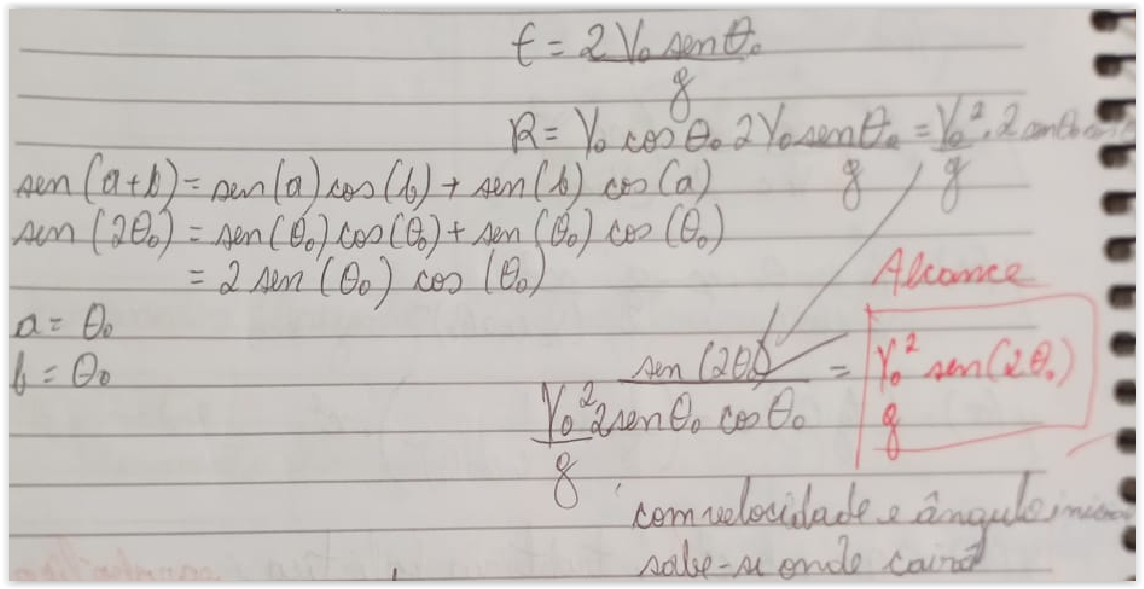 t = 2V₀ senθ₀
g
R = V₀ cosθ₀ 2V₀senθ₀ = V₀² . 2 senθ₀ cos
g g
sen (a+b) = sen(a) cos(b) + sen(b) cos(a)
sen (2θ₀) = sen(θ₀) cos(θ₀) + sen(θ₀) cos(θ₀)
= 2 sen (θ₀) cos (θ₀)
Alcance
a = θ₀
b = θ₀
sen (2θ₀) = V₀² sen(2θ₀)
g
V₀² 2senθ₀ cosθ₀
g
com velocidade e ângulo
sabe-se onde cairá